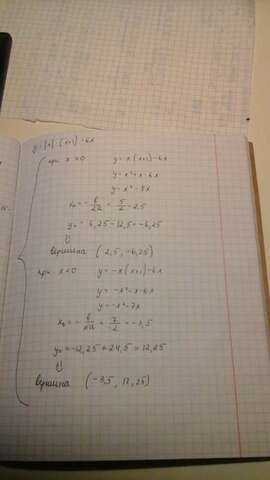 y = |x| · (x+1) - 6x
при x ≥ 0 y = x (x+1) - 6x
y = x² + x - 6x
y = x² - 5x
x₀ = - b/2a = 5/2 = 2,5
y₀ = 6,25 - 12,5 = -6,25
вершина (2,5, -6,25)
при x < 0 y = -x (x+1) - 6x
y = -x² - x - 6x
y = -x² - 7x
x₀ = - b/2a = 7/-2 = -3,5
y₀ = -12,25 + 24,5 = 12,25
вершина (-3,5, 12,25)